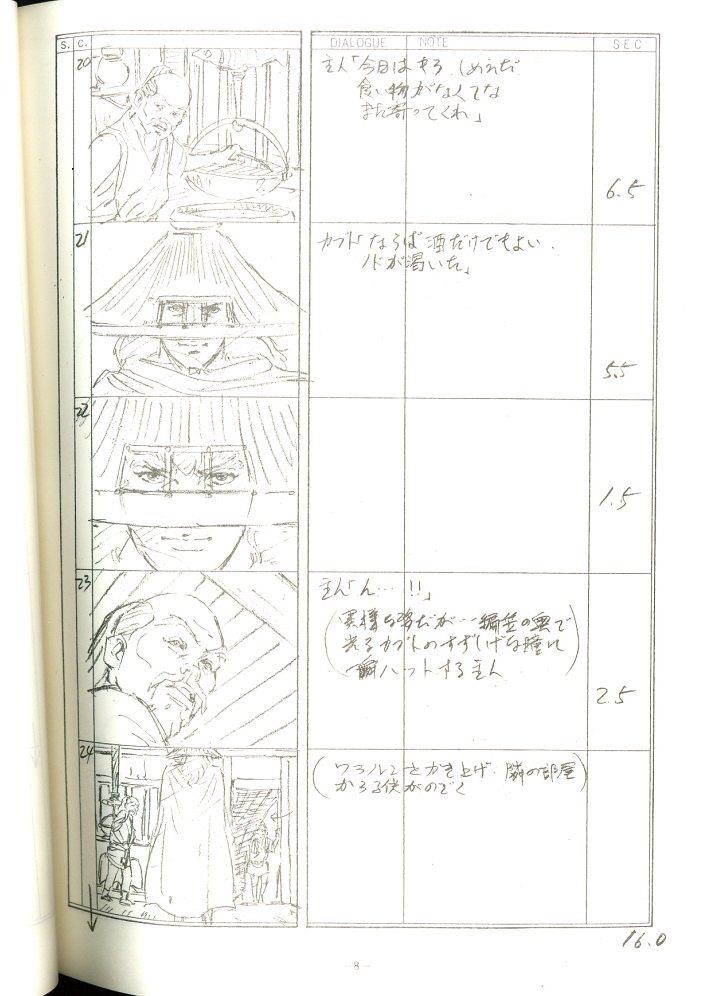 S. C. DIALOGUE NOTE SEC
20
主人「今日はもう しめえだ
食い物がなくてな
また寄ってくれ」
6.5
21
カブト「ならば酒だけでもよい.
ノドが渇いた」
5.5
22
1.5
23
主人「ん…!!」
(異様な姿だが…編笠の奥で
光るカブトのすずしげな瞳に
一瞬ハットする主人)
2.5
24
かき上げ 隣の部屋
子供がのぞく
16.0
8